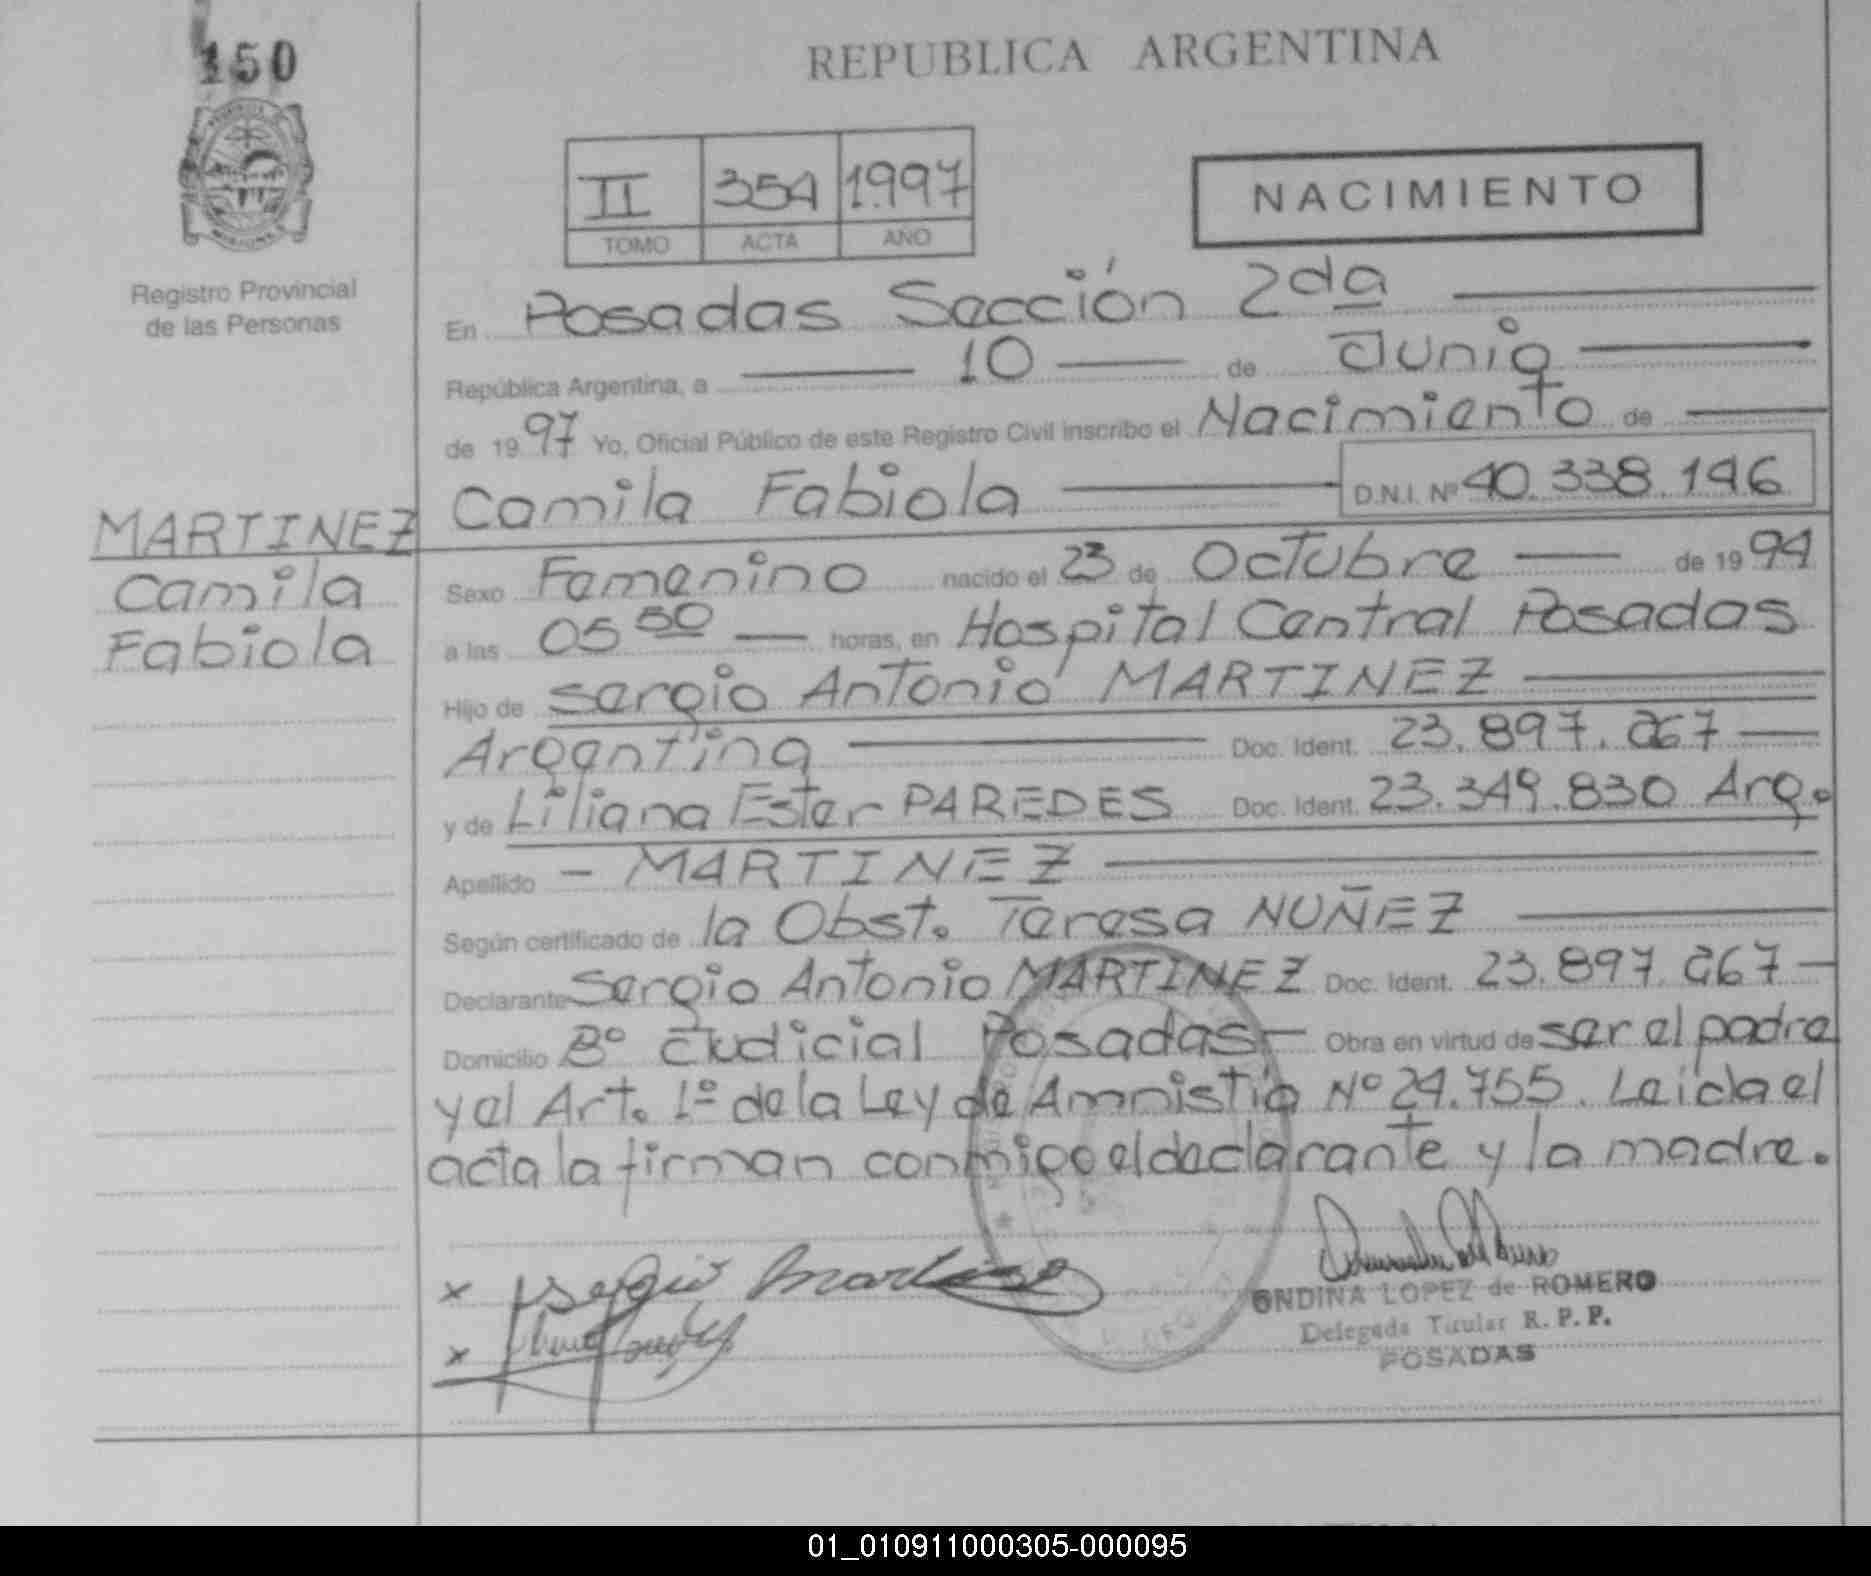 150
REPUBLICA ARGENTINA
II 354 1997
TOMO ACTA AÑO
NACIMIENTO
Registro Provincial
de las Personas
En Posadas Sección 2da
República Argentina, a 10 de Junio
de 1997 Yo, Oficial Público de este Registro Civil inscribo el Nacimiento de
Camila Fabiola D.N.I. Nº 40.338.146
MARTINEZ
Camila
Fabiola
Sexo Femenino nacido el 23 de Octubre de 1994
a las 05 50 horas, en Hospital Central Posadas
Hijo de Sergio Antonio MARTINEZ
Argentina Doc. Ident. 23.897.267
y de Liliana Ester PAREDES Doc. Ident. 23.349.830 Arg.
Apellido - MARTINEZ
Según certificado de la Obst. Teresa NUÑEZ
Declarante Sergio Antonio MARTINEZ Doc. Ident. 23.897.267
Domicilio Bº Judicial Posadas Obra en virtud de ser el padre
y el Art. 1º de la Ley de Amnistia Nº 24.755. Leida el
acta la firman conmigo el declarante y la madre.
x Sergio Martinez
x
ONDINA LOPEZ de ROMERO
Delegada Titular R. P. P.
POSADAS
01_010911000305-000095